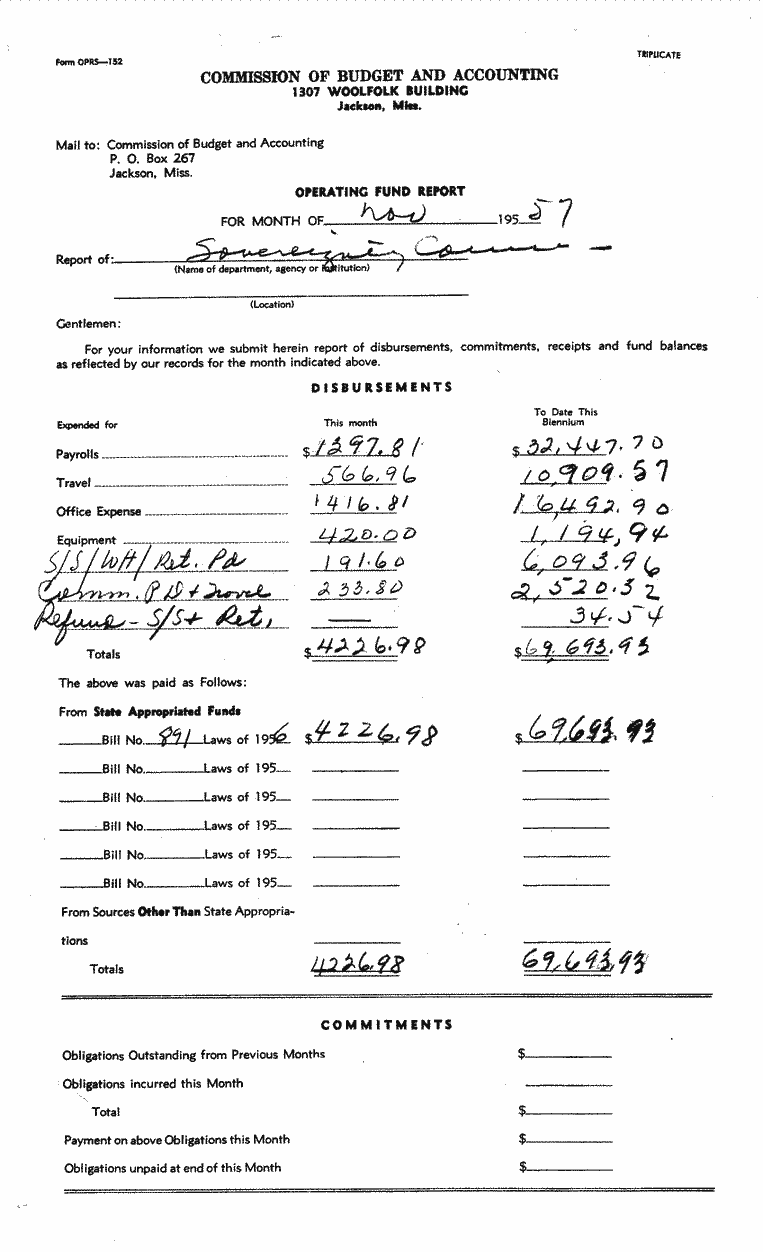 Form OPRS—152
TRIPLICATE
COMMISSION OF BUDGET AND ACCOUNTING
1307 WOOLFOLK BUILDING
Jackson, Miss.
Mail to: Commission of Budget and Accounting
P. O. Box 267
Jackson, Miss.
OPERATING FUND REPORT
FOR MONTH OF Nov 195 57
Report of: Sovereignty Comm
(Name of department, agency or institution)
(Location)
Gentlemen:
For your information we submit herein report of disbursements, commitments, receipts and fund balances
as reflected by our records for the month indicated above.
DISBURSEMENTS
Expended for This month To Date This Biennium
Payrolls $1397.81 $32,447.70
Travel 566.96 10,909.57
Office Expense 1416.81 16,492.90
Equipment 420.00 1,194.94
S/S/WH/Ret. Pd 191.60 6,093.96
Comm. P D + Travel 233.80 2,520.32
Refund - S/S + Ret. — 34.54
Totals $4226.98 $69,693.93
The above was paid as Follows:
From State Appropriated Funds
Bill No. 891 Laws of 1956 $4226.98 $69,693.93
Bill No. Laws of 195
Bill No. Laws of 195
Bill No. Laws of 195
Bill No. Laws of 195
Bill No. Laws of 195
From Sources Other Than State Appropria-
tions
Totals 4226.98 69,693.93
COMMITMENTS
Obligations Outstanding from Previous Months $
Obligations incurred this Month
Total $
Payment on above Obligations this Month $
Obligations unpaid at end of this Month $